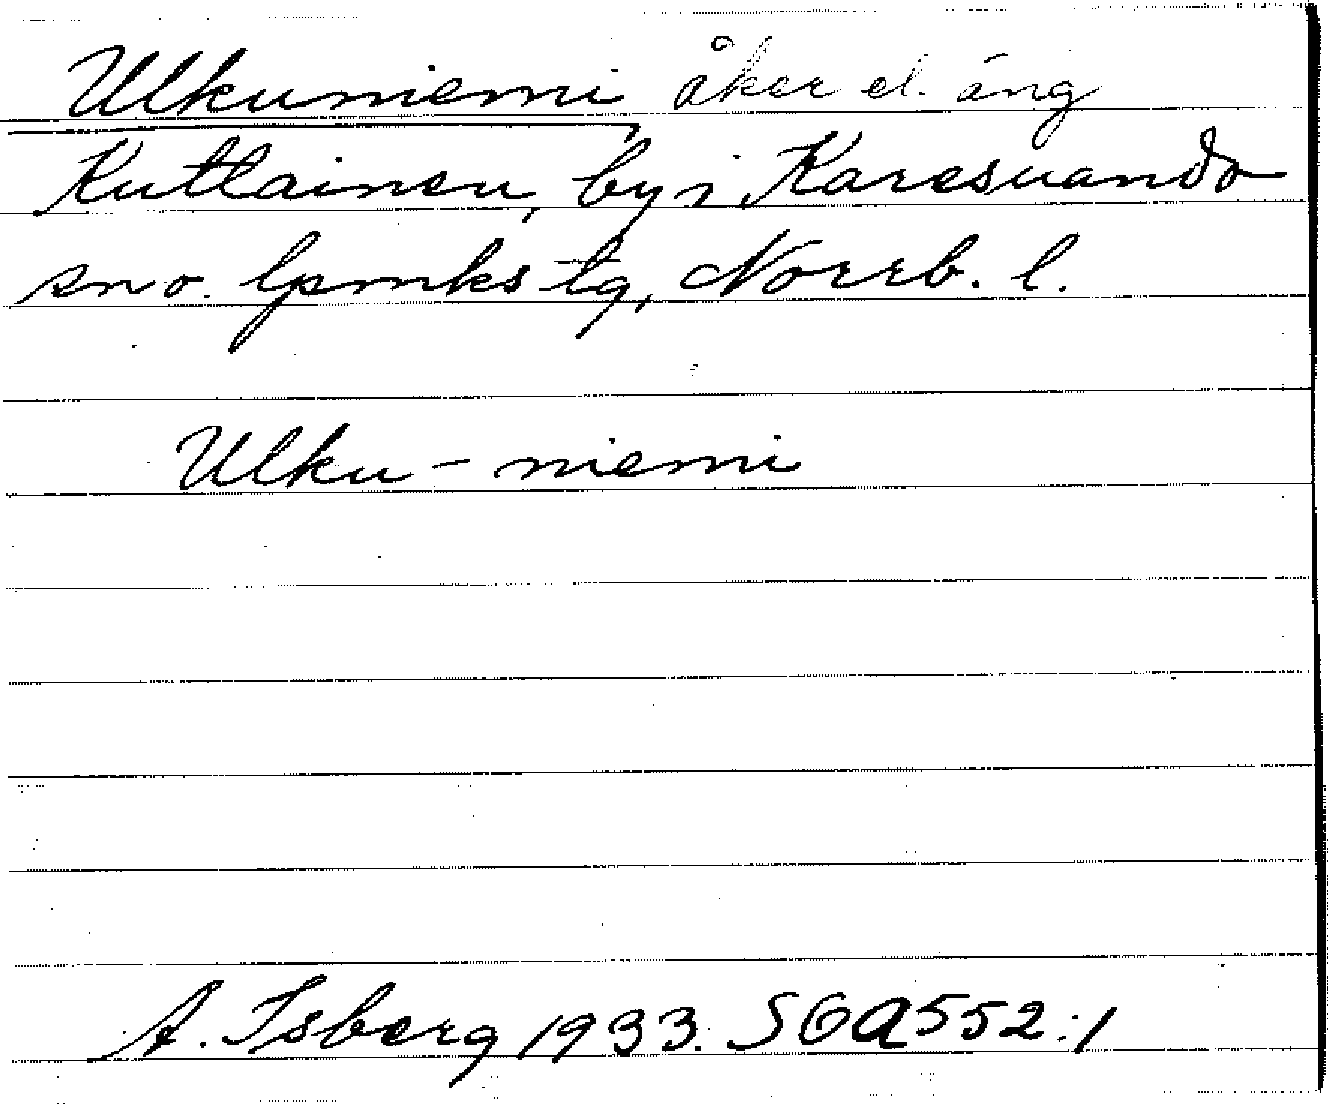 Ulkuniemi, åker el. äng
Kuttainen, by i Karesuando
sn o. lpmks tg, Norrb. l.
Ulku - niemi
A. Isberg 1933. SOA 552:1